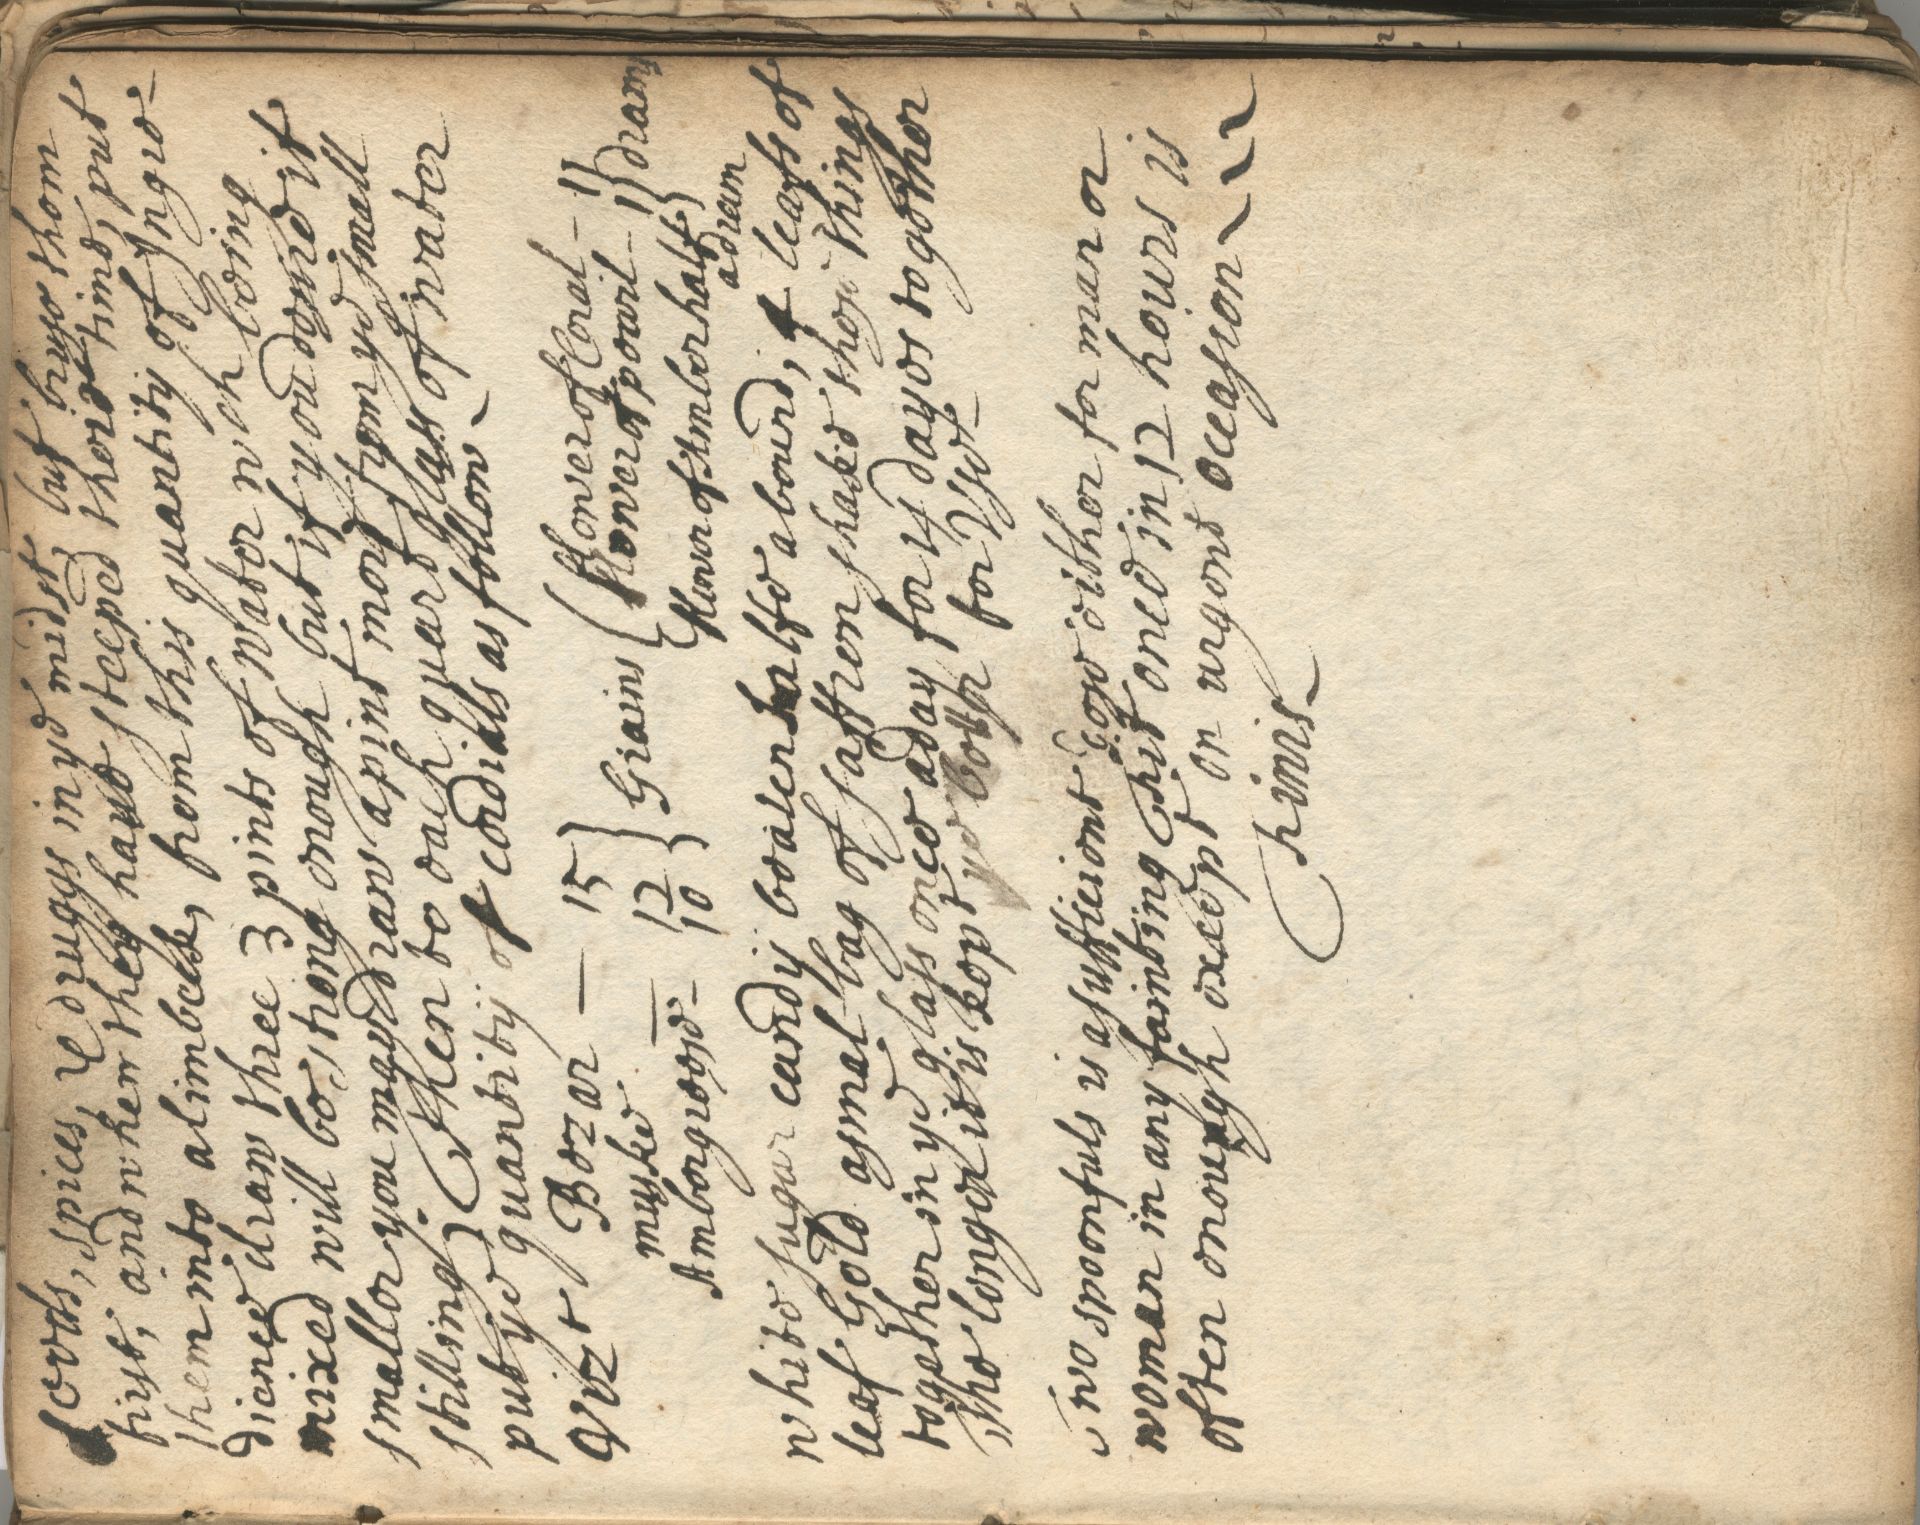 roots, spices, & druggs in ye midst, but bruse them
first, and when they have steeped there time, put
them into a limbeck, from this quantity of Ingre-
dience draw three 3 pints of water wch being
mixed will be strong enough but if you desire it
smaller you may draw a pint more from ye small
stilling) Then to each quart glass of water
put ye quantity of cordialls as follow
Bezar — 15
muske — 12
Ambergreese - 10
} Grains {
flower of Coral - 1
flower of pearl - 1
} dram
flower of Amber half
a dram
white sugar candy beaten halfe a pound, 4 leafs of
leaf Gold a smal bag of saffron shake these things
together in ye glass once a day for 14 dayes together
the longer it is kept ye bettr for Use
two spoonfuls is a sufficient dose either for man or
woman in any fainting fit once in 12 hours is
often enough except on urgent occasion
finis